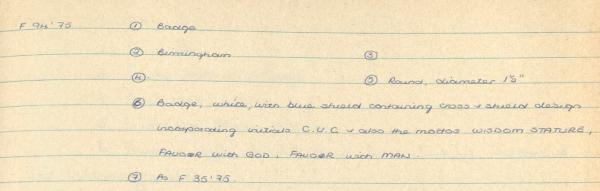 F 94'75 ① Badge
② Birmingham ③
④ ⑤ Round, diameter 1½"
⑥ Badge, white, with blue shield containing cross & shield design
incorporating initials C.U.C & also the mottos WISDOM STATURE,
FAVOUR with GOD, FAVOUR with MAN.
⑦ As F 35'75.